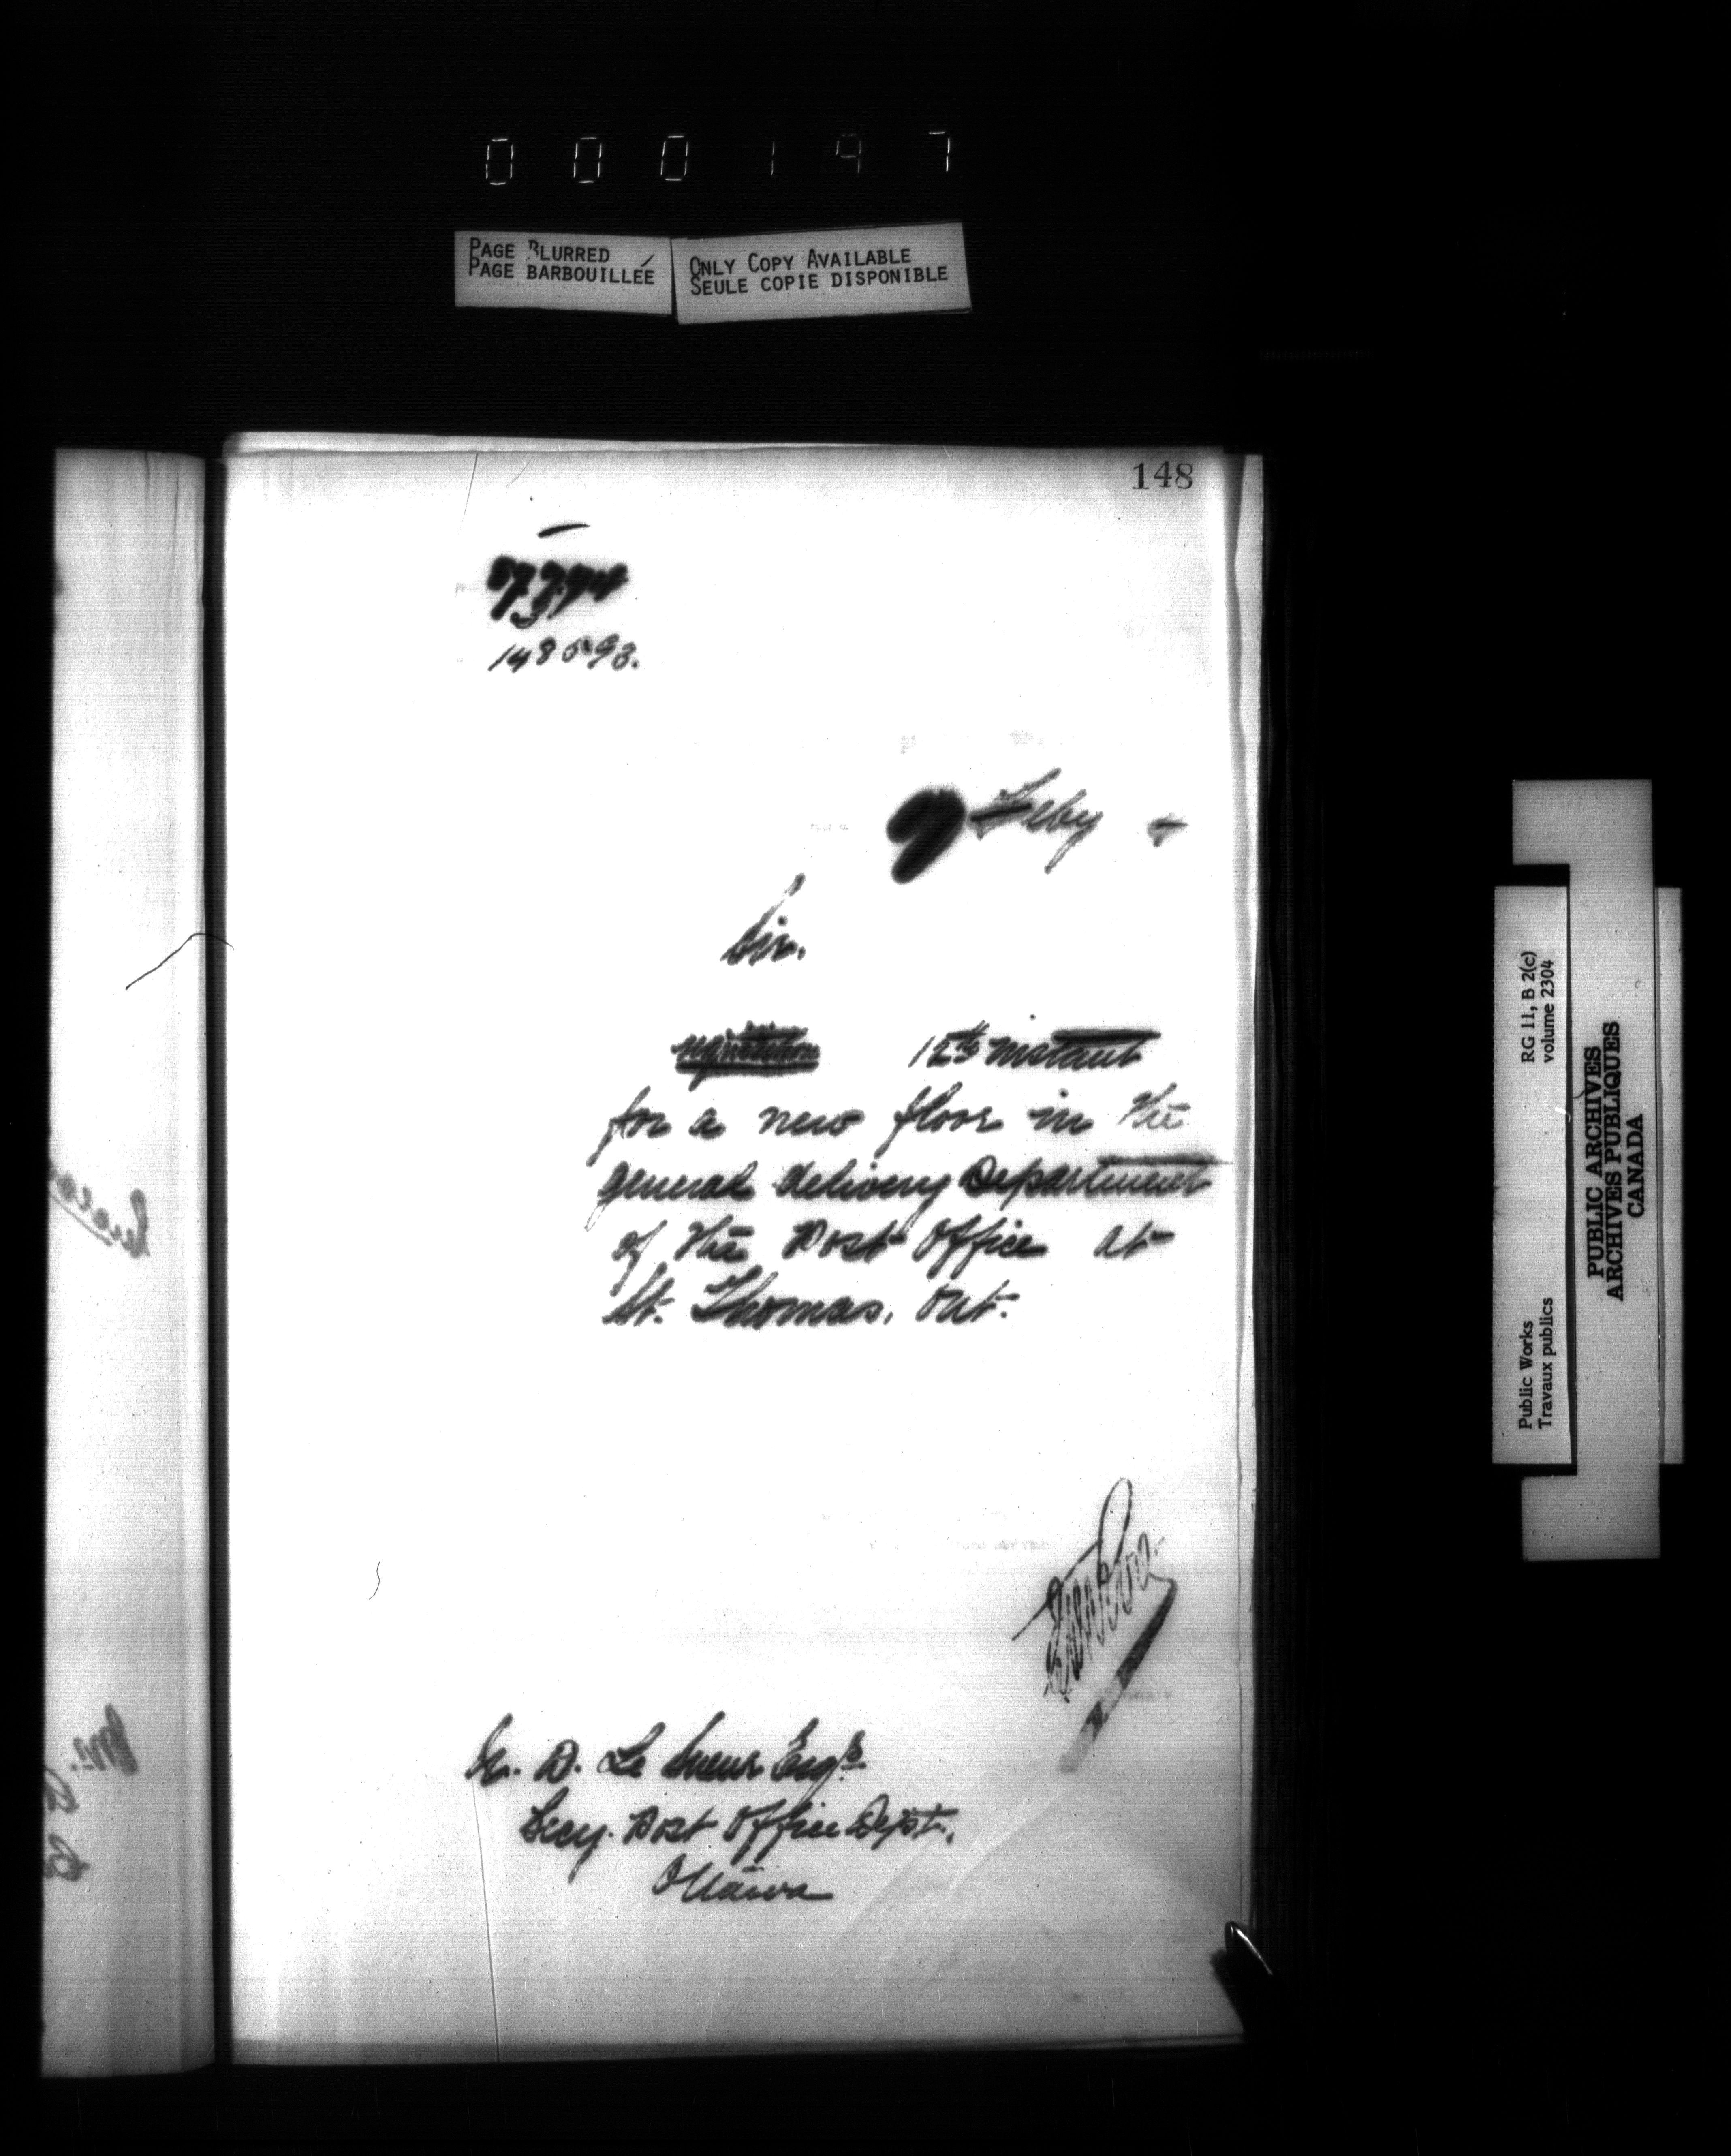 000197
PAGE BLURRED
PAGE BARBOUILLÉE
ONLY COPY AVAILABLE
SEULE COPIE DISPONIBLE
148
148593.
Feby
Sir.
12th instant
for a new floor in the
general delivery Department
of the Post Office at
St. Thomas, Ont.
W. D. Le Sueur Esqr.
Secy. Post Office Dept.
Ottawa
RG 11, B 2(c)
volume 2304
Public Works
Travaux publics
PUBLIC ARCHIVES
ARCHIVES PUBLIQUES
CANADA